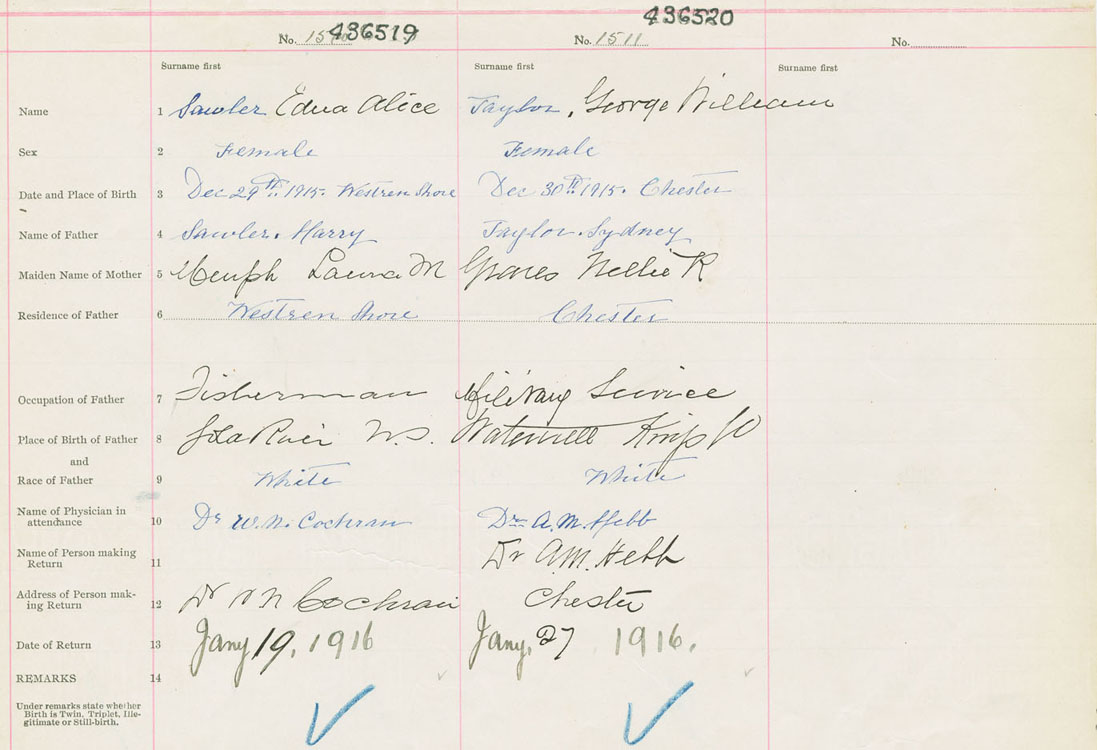 436519 436520
No. 1510 No. 1511 No.
Surname first Surname first Surname first
Name 1 Sawler Edna Alice Taylor, George William
Sex 2 Female Female
Date and Place of Birth 3 Dec 29th. 1915. Westren Shore Dec 30th 1915. Chester
Name of Father 4 Sawler. Harry Taylor. Sydney
Maiden Name of Mother 5 Laura M Nellie R
Residence of Father 6 Westren Shore Chester
Occupation of Father 7 Fisherman Military Service
Place of Birth of Father 8 N.S.
and
Race of Father 9 White White
Name of Physician in
attendance 10 Dr W.N. Cochran Dr A.M. Hebb
Name of Person making
Return 11 Dr A.M. Hebb
Address of Person mak-
ing Return 12 Dr W N Cochran Chester
Date of Return 13 Jany 19, 1916 Jany. 27 1916.
REMARKS 14
Under remarks state whether
Birth is Twin, Triplet, Ille-
gitimate or Still-birth.